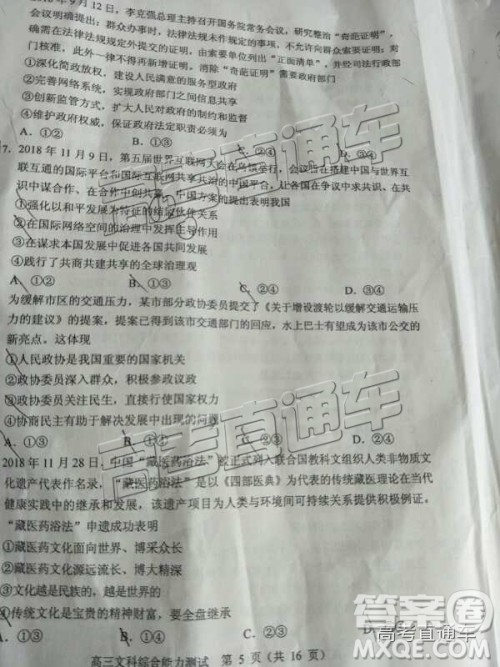 年9月12日，李克强总理主持召开国务院常务会议，研究整治“奇葩证明”，
会议明确提出：群众办事时，法律法规未作规定的事项，不允许向群众索要证明；对
确需在法律法规规定外提交的证明，由主要单位列出“正面清单”，并经司法行政部
门核准，此外一律不得再新增证明。消除“奇葩证明”需要政府部门
①深化简政放权，建设人民满意的服务型政府
②完善网络系统，实现政府部门之间信息共享
③创新监督方式，扩大人民对政府的制约和监督
④维护政府权威，保证政府法定职责必须为
A．①② B．①③ C．②④ D．③④
7．2018年11月9日，第五届世界互联网大会在乌镇举行，会议旨在搭建中国与世界互
联互通的国际平台和国际互联网共享共治的中国平台，让各国在争议中求共识，在共
识中谋合作、在合作中创共赢。中国方案的提出表明我国
①强化以和平发展为特征的结盟伙伴关系
②在国际网络空间的治理中发挥主导作用
③在谋求本国发展中促进各国共同发展
④践行了共商共建共享的全球治理观
A．①② B．①③ C．②④ D．③④
为缓解市区的交通压力，某市部分政协委员提交了《关于增设渡轮以缓解交通运输压
力的建议》的提案，提案已得到该市交通部门的回应，水上巴士有望成为该市公交的
新亮点。这体现
①人民政协是我国重要的国家机关
②政协委员深入群众，积极参政议政
③政协委员关注民生，直接行使国家权力
④协商民主有助于解决发展中出现的问题
A．①③ B．①④ C．②③ D．②④
2018年11月28日，中国“藏医药浴法”被正式列入联合国教科文组织人类非物质文
化遗产代表作名录，“藏医药浴法”是以《四部医典》为代表的传统藏医理论在当代
健康实践中的继承和发展，该遗产项目为人类与环境间可持续关系提供积极例证。
“藏医药浴法”申遗成功表明
①藏医药文化面向世界、博采众长
②藏医药文化源远流长、博大精深
③文化越是民族的，越是世界的
④传统文化是宝贵的精神财富，要全盘继承
A．①② B．①④ C．②③
高三文科综合能力测试 第5页（共16页）
高考直通车
高考直通车
高考直通车